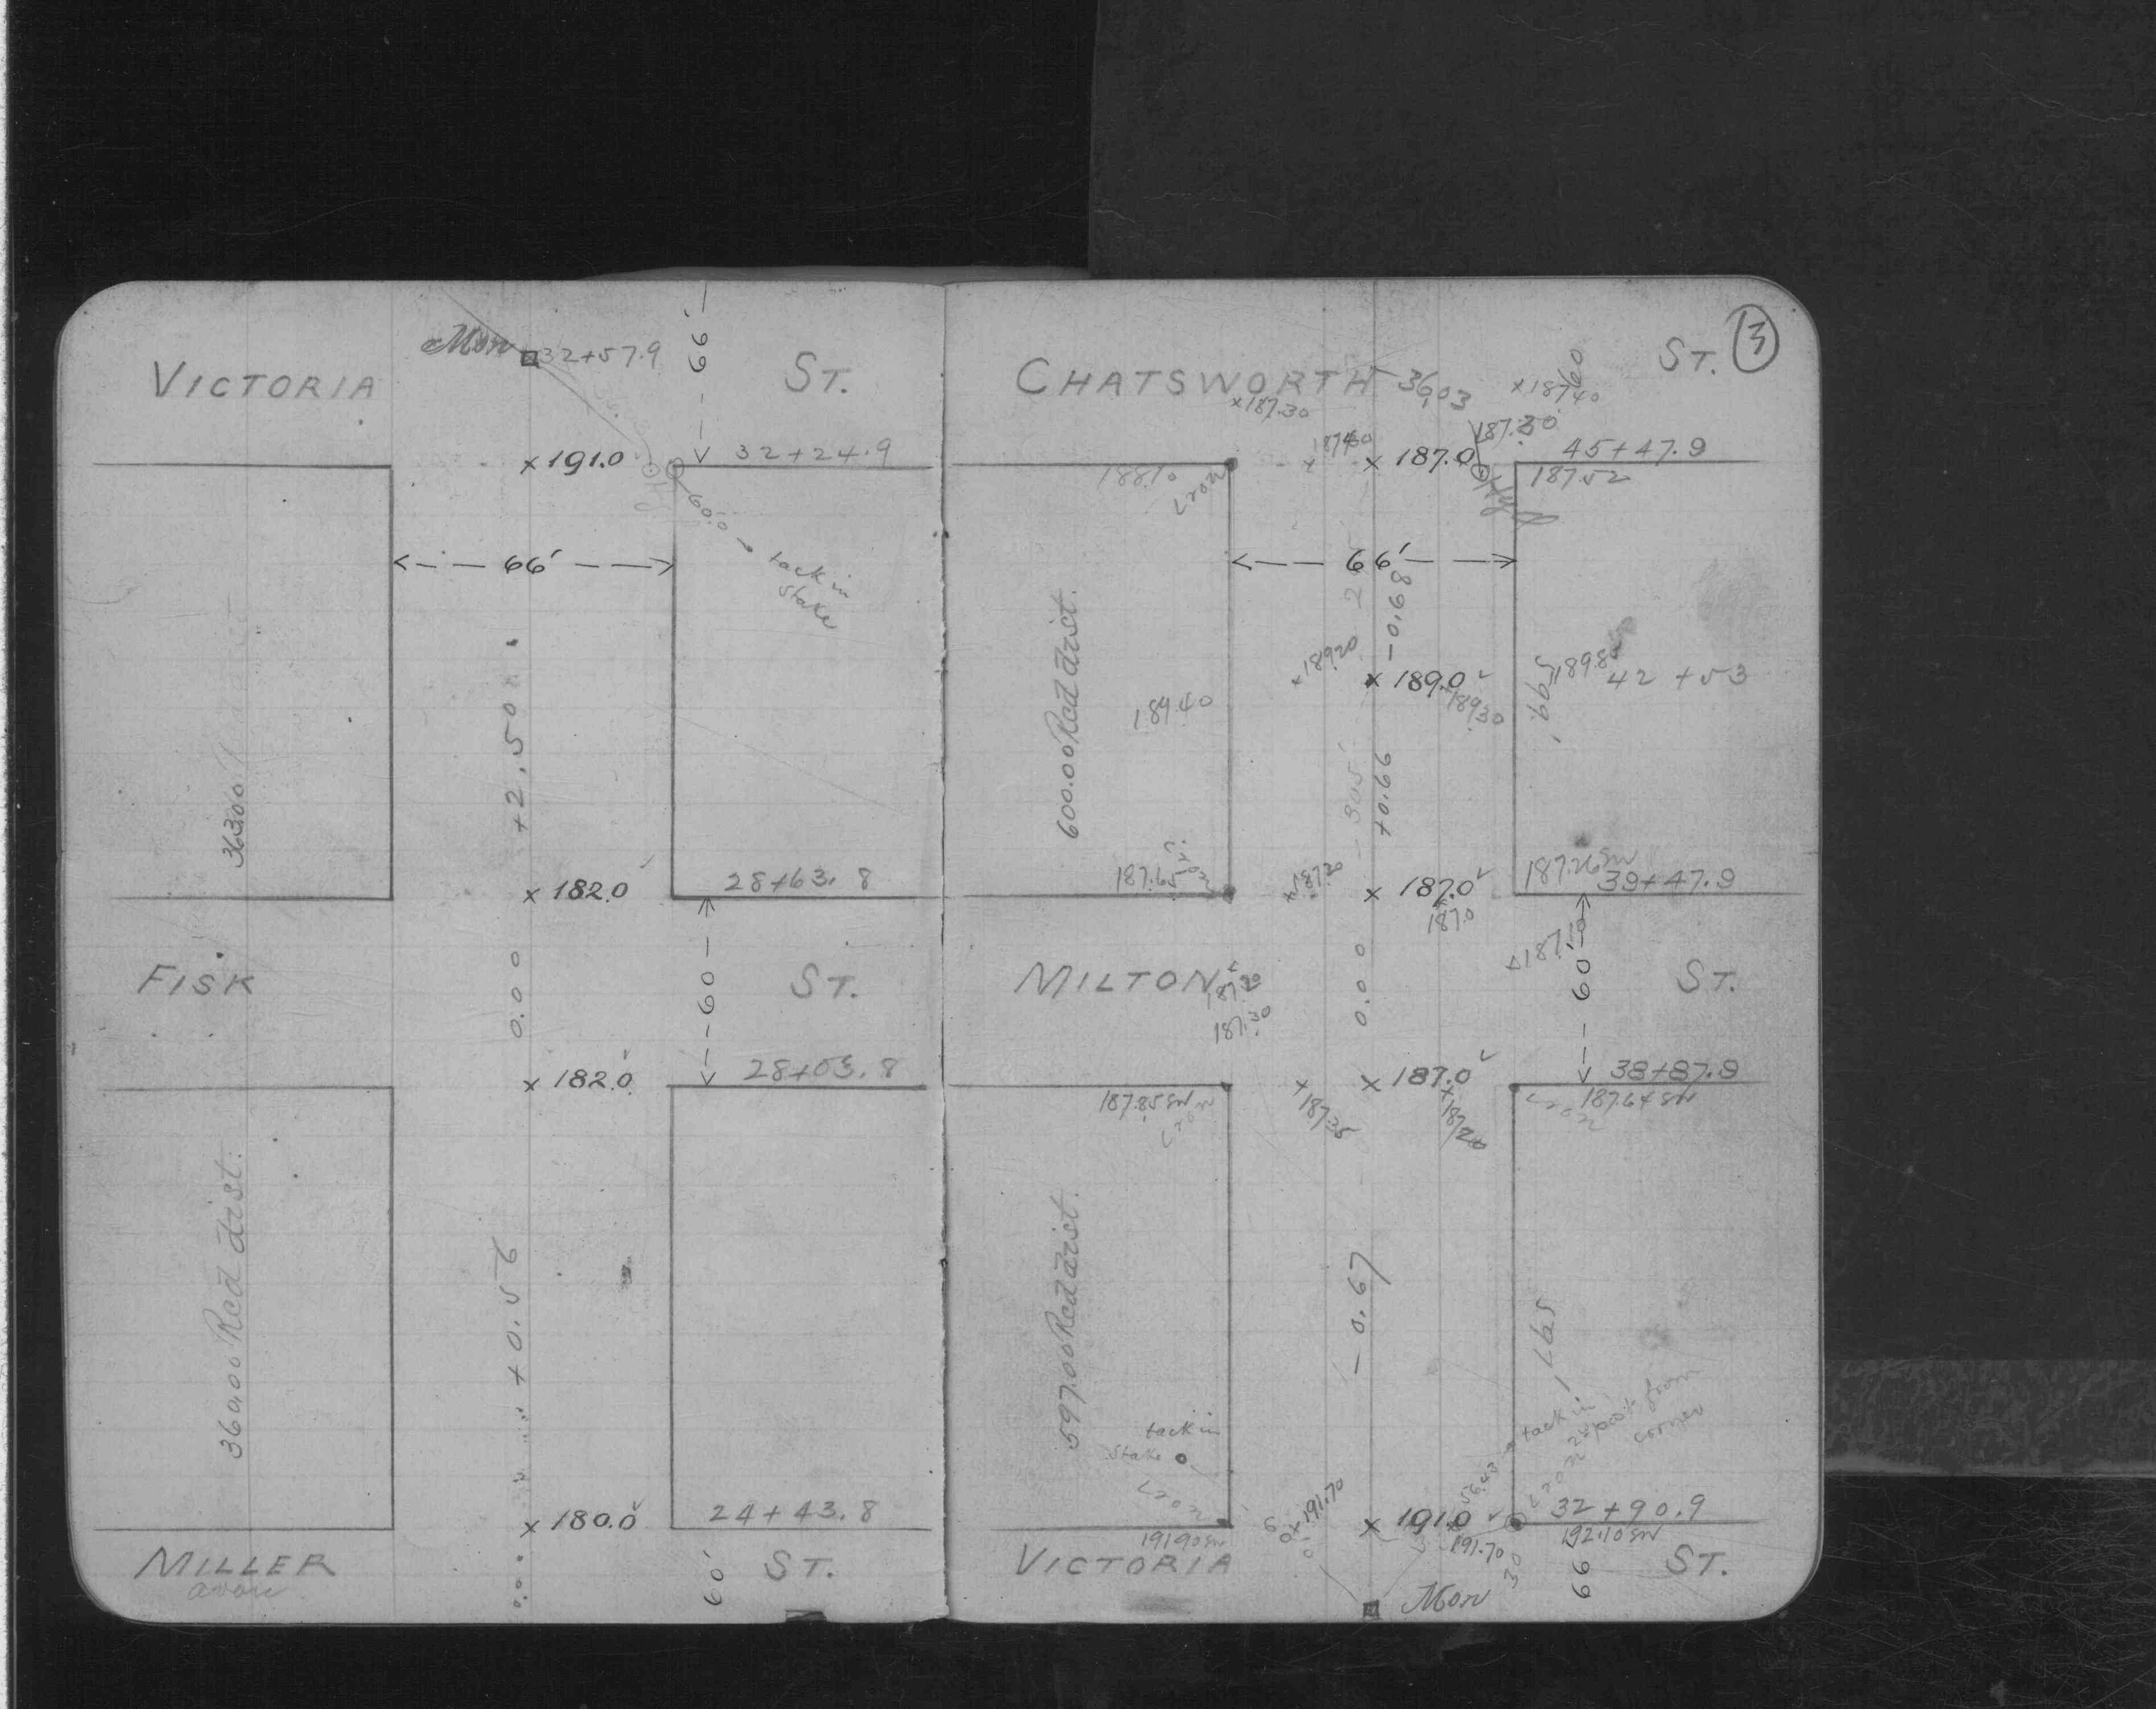 Mon
32+57.9
66'
VICTORIA ST.
×191.0
32+24.9
60.0
tack in
stake
66'
363.00
+2.50
×182.0
28+63.8
FISK ST.
0.00
60
×182.0
28+03.8
360.00 Rcd dist.
+0.56
×180.0
24+43.8
MILLER ST.
avon
60'
3
CHATSWORTH ST.
36.03
×187.30
×187.40
187.30
×187.0
45+47.9
188.10
Iron
187.52
66'
600.00 Rcd dist.
-0.68
×189.20
×189.0
189.30
189.40
189.8
42+53
599.
305
+0.66
187.20
×187.0
187.0
187.26 SW
39+47.9
MILTON ST.
187.20
187.30
0.00
187.10
60
×187.0
38+87.9
187.85 SW
Iron
×187.35
187.64 SW
Iron
597.00 Rcd dist.
-0.67
597
tack in
stake
Iron
tack in
56.43
corner
191.70
×191.0
32+90.9
191.90 SW
191.70
192.10 SW
VICTORIA ST.
Mon
66